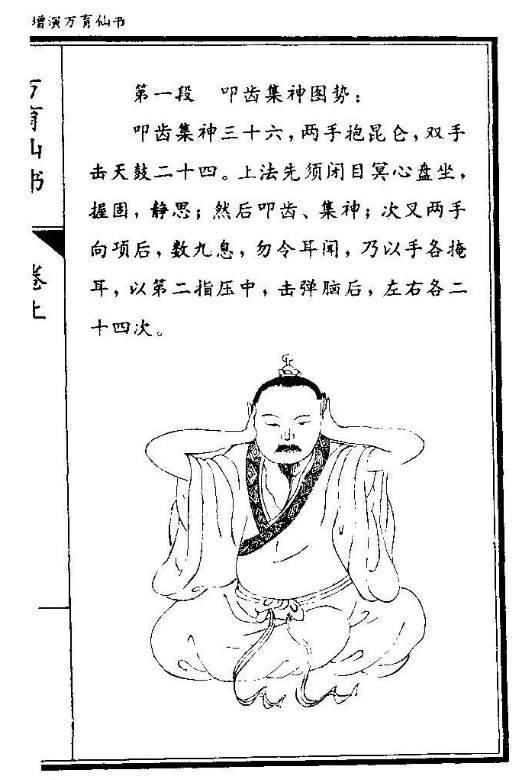 增演万育仙书
万育仙书
卷上
第一段 叩齿集神图势：
叩齿集神三十六，两手抱昆仑，双手
击天鼓二十四。上法先须闭目冥心盘坐，
握固，静思；然后叩齿、集神；次叉两手
向项后，数九息，勿令耳闻，乃以手各掩
耳，以第二指压中，击弹脑后，左右各二
十四次。